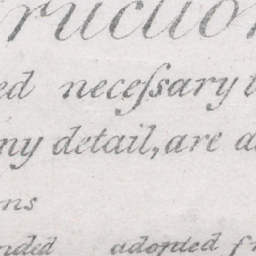 ruction
ed neceſsary t
ny detail, are a
ns
nded adopted fr